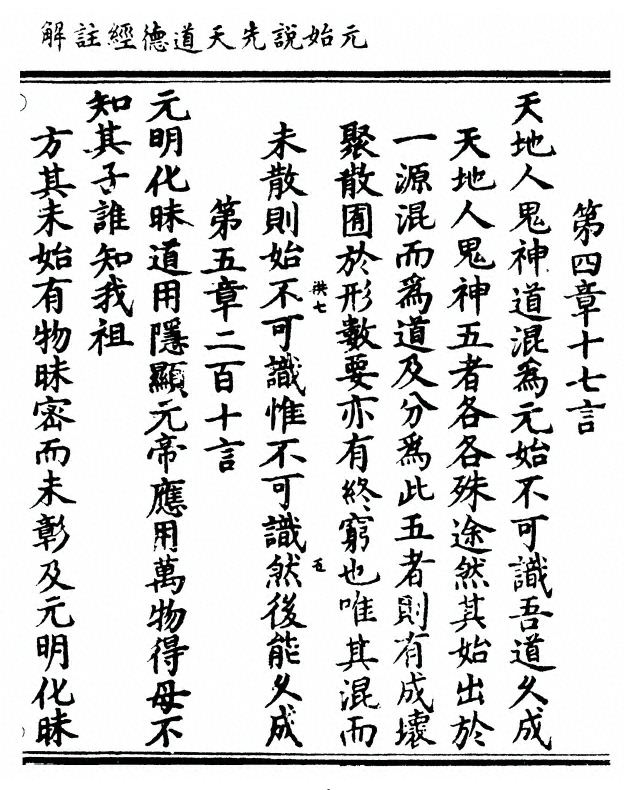 元始說先天道德經註解
第四章十七言
天地人鬼神道混為元始不可識吾道乆成
天地人鬼神五者各各殊途然其始出於
一源混而為道及分為此五者則有成壞
聚散囿於形數要亦有終窮也唯其混而
洪七
五
未散則始不可識惟不可識然後能乆成
第五章二百十言
元明化昧道用隱顯元帝應用萬物得母不
知其子誰知我祖
方其未始有物昧密而未彰及元明化昧